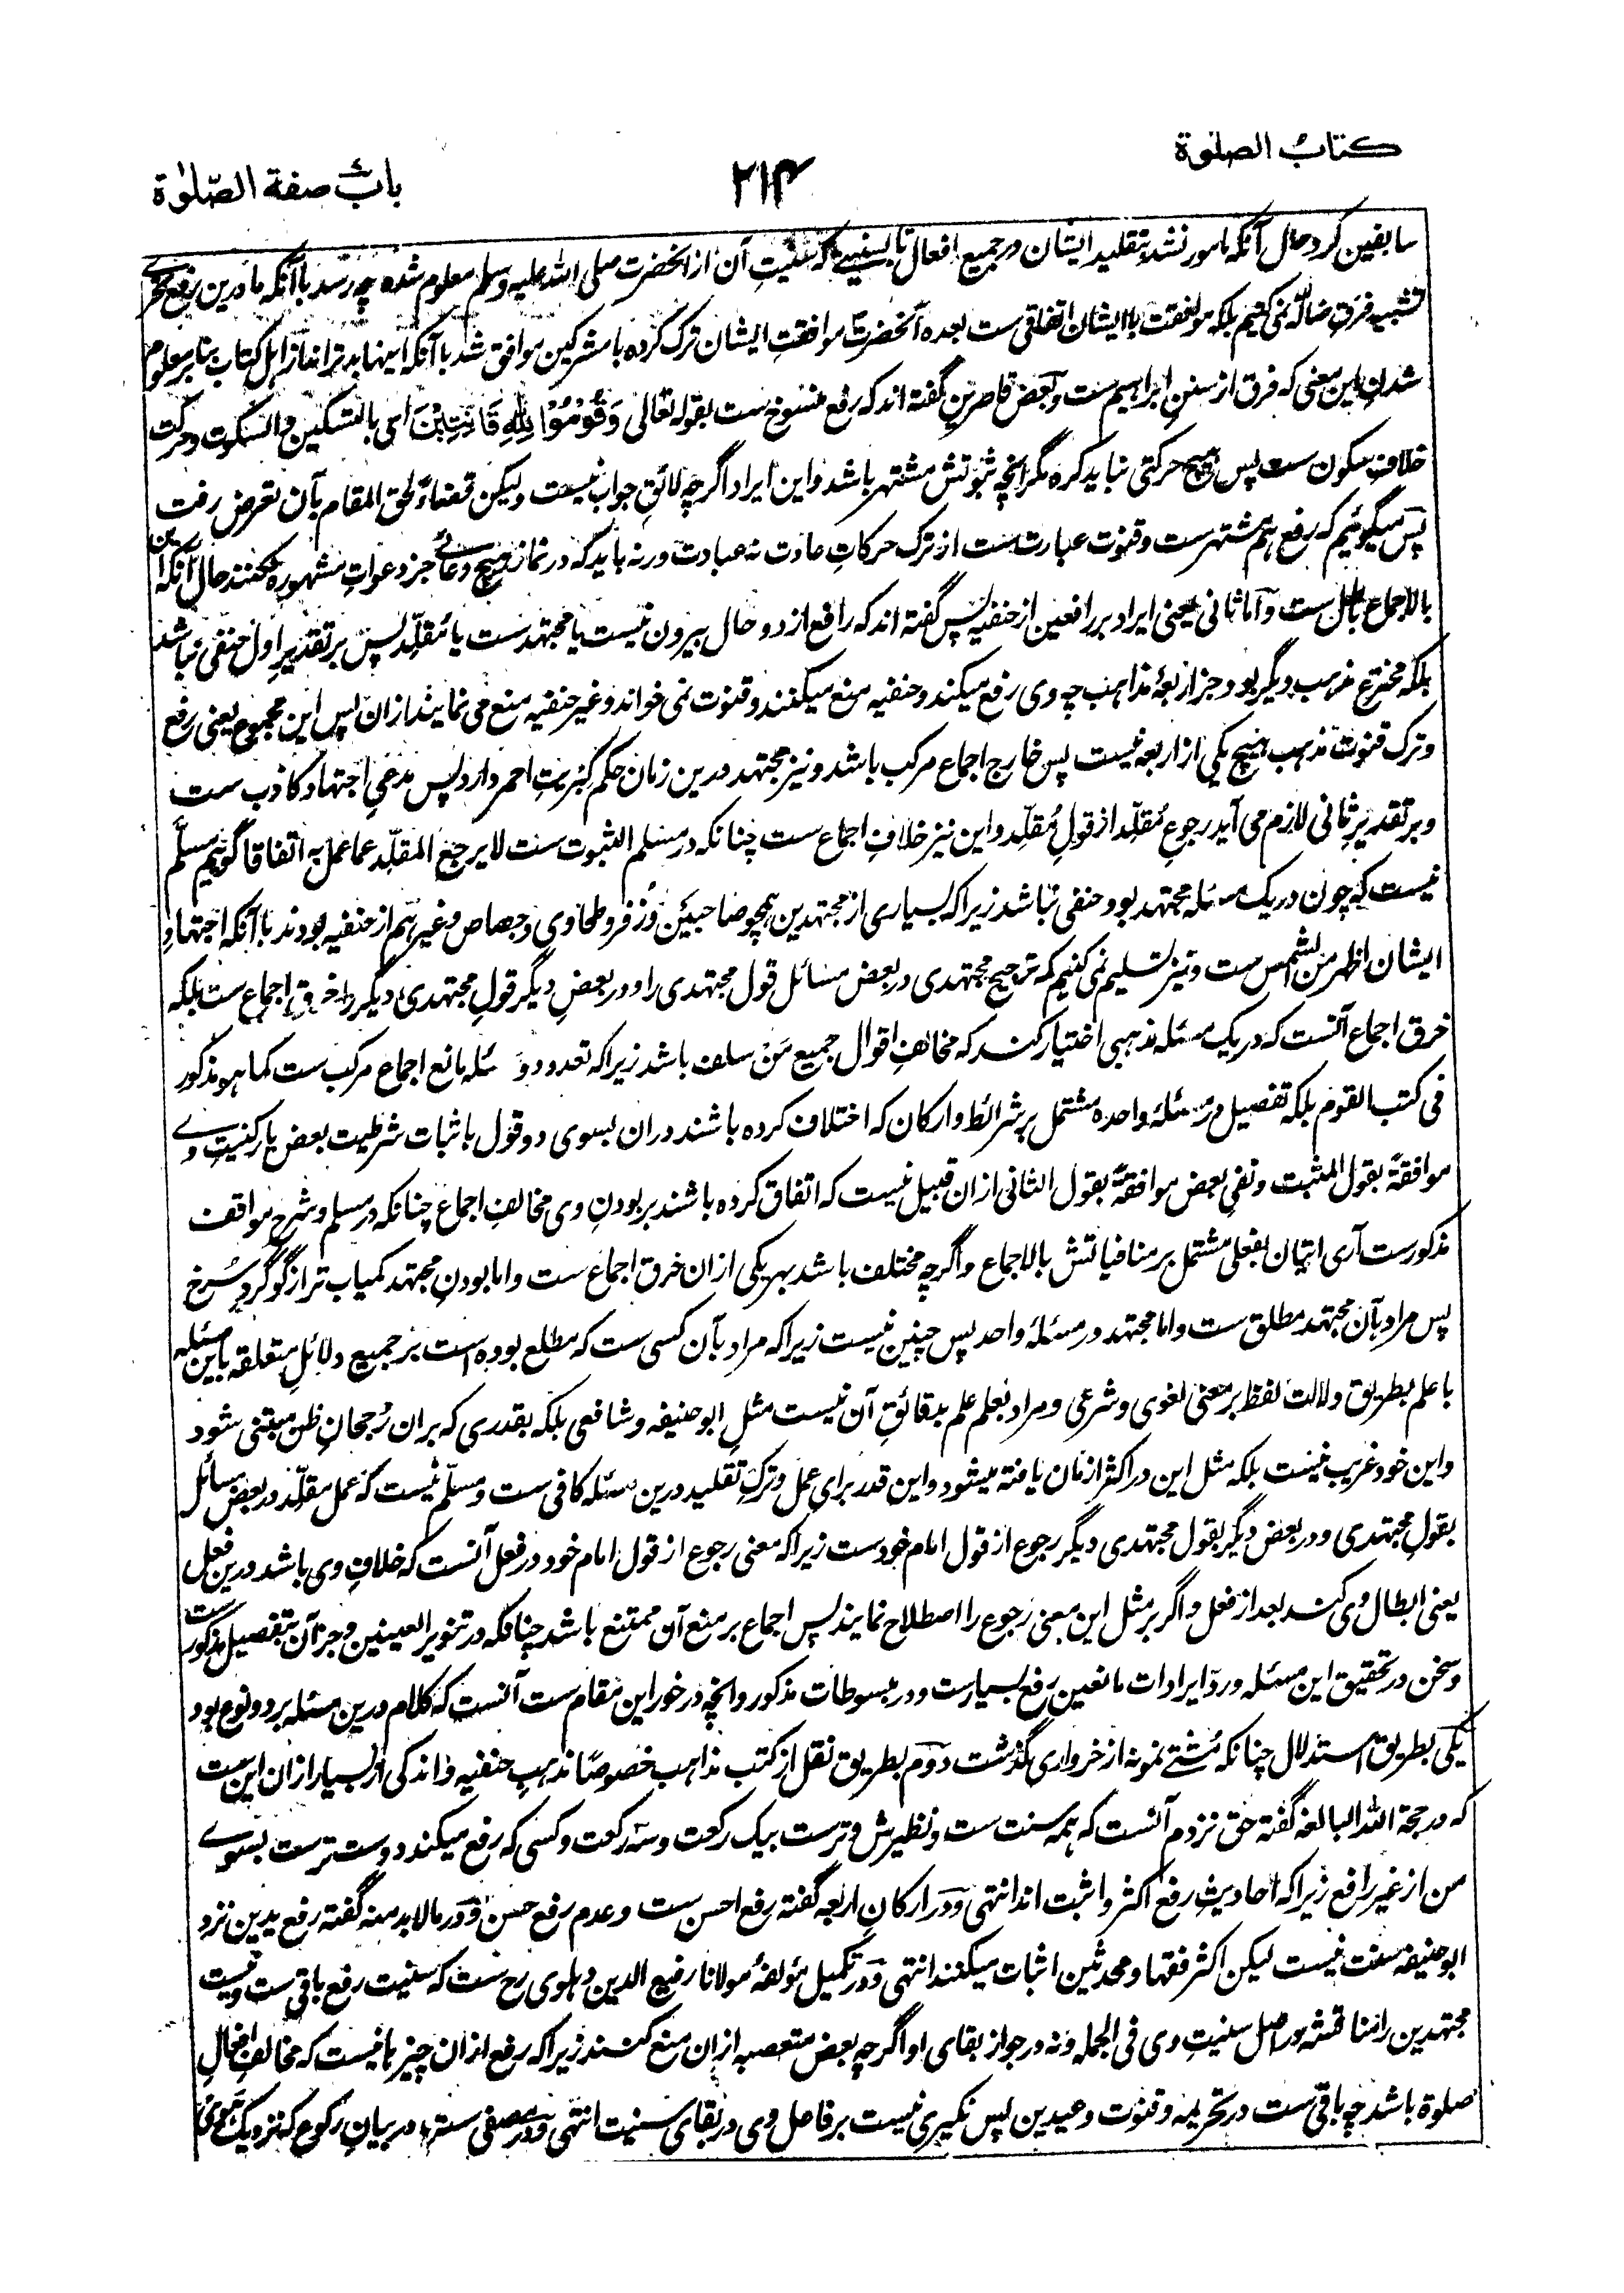 كتاب الصلوة
۲۱۴
باب صفة الصّلوٰة
سابقین کرد حال آنکه مامور نشد بتقلید ایشان در جمیع افعال تا بسنیتے که سنیتِ آن از آنحضرت صلی الله علیه وسلم معلوم شده چه رسد با آنکه ما درین رفع
تشبیه فرقِ ضالّه نمی کنیم بلکه موافقت با ایشان اتفاقی ست بعده آنحضرت موافقتِ ایشان ترک کرده با مشرکین موافق شد با آنکه اینها بدتر اند از اهل کتاب بنا بر معلوم
شدن این معنی که فرق از سننِ ابراهیم ست و بعض قاصرین گفته اند که رفع منسوخ ست بقوله تعالی وَقُوْمُوْا لِلّٰهِ قَانِتِیْنَ ای بالتسکین والسکوت و حرکت
خلافِ سکون ست پس هیچ حرکتی نباید کرد مگر آنچه ثبوتش مشتهر باشد و این ایراد اگرچه لائقِ جواب نیست ولیکن قضاءً لحق المقام بآن تعرض رفت
پس میگوئیم که رفع هم مشتهر ست و قنوت عبارت ست از ترک حرکاتِ عادت نه عبادت ورنه باید که در نماز هیچ دعائے جز دعواتِ مشهوره نکنند حال آنکه این
بالاجماع باطل ست و اما ثانی یعنی ایراد بر رافعین از حنفیه پس گفته اند که رافع از دو حال بیرون نیست یا مجتهد ست یا مقلّد پس بر تقدیرِ اول حنفی نباشد
بلکه مخترعِ مذهب دیگر بود جز اربعهٔ مذاهب چه وی رفع میکند و حنفیه منع میکنند و قنوت نمی خواند و غیر حنفیه منع می نمایند ازان پس این مجموع یعنی رفع
و ترک قنوت مذهب هیچ یکی از اربعه نیست پس خارج اجماع مرکب باشد و نیز مجتهد درین زمان حکم کبریتِ احمر دارد پس مدعیِ اجتهاد کاذب ست
و بر تقدیرِ ثانی لازم می آید رجوعِ مُقلِّد از قولِ مُقلَّد و این نیز خلافِ اجماع ست چنانکه در مسلم الثبوت ست لا یرجع المقلّد عما عمل به اتفاقا گوئیم مسلّم
نیست که چون در یک مسئله مجتهد بود حنفی نباشد زیرا که بسیاری از مجتهدین همچو صاحبین و زفر و طحاوی و جصاص و غیرهم از حنفیه بودند با آنکه اجتهادِ
ایشان اظهر من الشمس ست و نیز تسلیم نمی کنیم که ترجیح مجتهدی در بعض مسائل قول مجتهدی را و در بعضِ دیگر قولِ مجتهدی دیگر را خرقِ اجماع ست بلکه
خرق اجماع آنست که در یک مسئله مذهبی اختیار کند که مخالفِ اقوال جمیع مَنْ سلف باشد زیرا که تعدد دو مسئله مانع اجماع مرکب ست کما هو مذکور
فی کتب القوم بلکه تفصیل در مسئلهٔ واحده مشتمل بر شرائط و ارکان که اختلاف کرده باشند دران بسوی دو قول با ثبات شرطیت بعض یا رکنیتِ وے
موافقةً بقول المثبت و نفیِ بعض موافقةً بقول الثانی ازان قبیل نیست که اتفاق کرده باشند بر بودنِ وی مخالفِ اجماع چنانکه در مسلم و شرح مواقف
مذکور ست آری اتیان بفعلی مشتمل بر منافیاتش بالاجماع و اگرچه مختلف باشد بهر یکی ازان خرق اجماع ست و اما بودنِ مجتهد کمیاب تر از گوگردِ سُرخ
پس مراد بآن مجتهد مطلق ست و اما مجتهد در مسئلهٔ واحد پس چنین نیست زیرا که مراد بآن کسی ست که مطلع بوده است بر جمیع دلائلِ متعلقه باین مسئله
با علم بطریق دلالت لفظ بر معنی لغوی و شرعی و مراد بعلم علم بدقائقِ آن نیست مثلِ ابوحنیفه و شافعی بلکه بقدری که بران رُجحانِ ظن مبتنی شود
و این خود غریب نیست بلکه مثل این در اکثر ازمان یافته میشود و این قدر برای عمل و ترکِ تقلید درین مسئله کافی ست و مسلّم نیست که عمل مقلّد در بعض مسائل
بقولِ مجتهدی و در بعض دیگر بقول مجتهدی دیگر رجوع از قول امام خودست زیرا که معنی رجوع از قول امام خود در فعل آنست که خلافِ وی باشد درین فعل
یعنی ابطال وی کند بعد از فعل و اگر بر مثل این معنی رجوع را اصطلاح نمایند پس اجماع بر منع آن ممتنع باشد چنانکه در تنویر العینین و جز آن بتفصیل مذکورست
و سخن در تحقیق این مسئله و ردّ ایرادات مانعین رفع بسیارست و در مبسوطات مذکور و آنچه در خور این مقام ست آنست که کلام درین مسئله بر دو نوع بود
یکی بطریق استدلال چنانکه مُشتے نمونه از خرواری گذشت دوم بطریق نقل از کتب مذاهب خصوصًا مذهبِ حنفیه و اندکی از بسیار ازان این ست
که در حجة الله البالغه گفته حق نزدم آنست که همه سنت ست و نظیرش وترست بیک رکعت و سه رکعت و کسی که رفع میکند دوست ترست بسوے
من از غیر رافع زیرا که احادیثِ رفع اکثر و اثبت اند انتهی و در ارکانِ اربعه گفته رفع احسن ست و عدم رفع حسن و در مالابد منه گفته رفع یدین نزد
ابوحنیفه سنت نیست لیکن اکثر فقها و محدثین اثبات میکنند انتهی و در تکمیل مؤلفهٔ مولانا رفیع الدین دهلوی رح ست که سنیت رفع باقی ست و نیست
مجتهدین را مناقشه در اصل سنیتِ وی فی الجمله و نه در جواز بقای او اگرچه بعض متعصبه ازان منع کنند زیرا که رفع ازان چیزها نیست که مخالفِ افعالِ
صلوة باشد چه باقی ست در تحریمه و قنوت و عیدین پس نکیری نیست بر فاعل وی در بقای سنیت انتهی و در مصفی ست در بیانِ رکوع که نزدیک